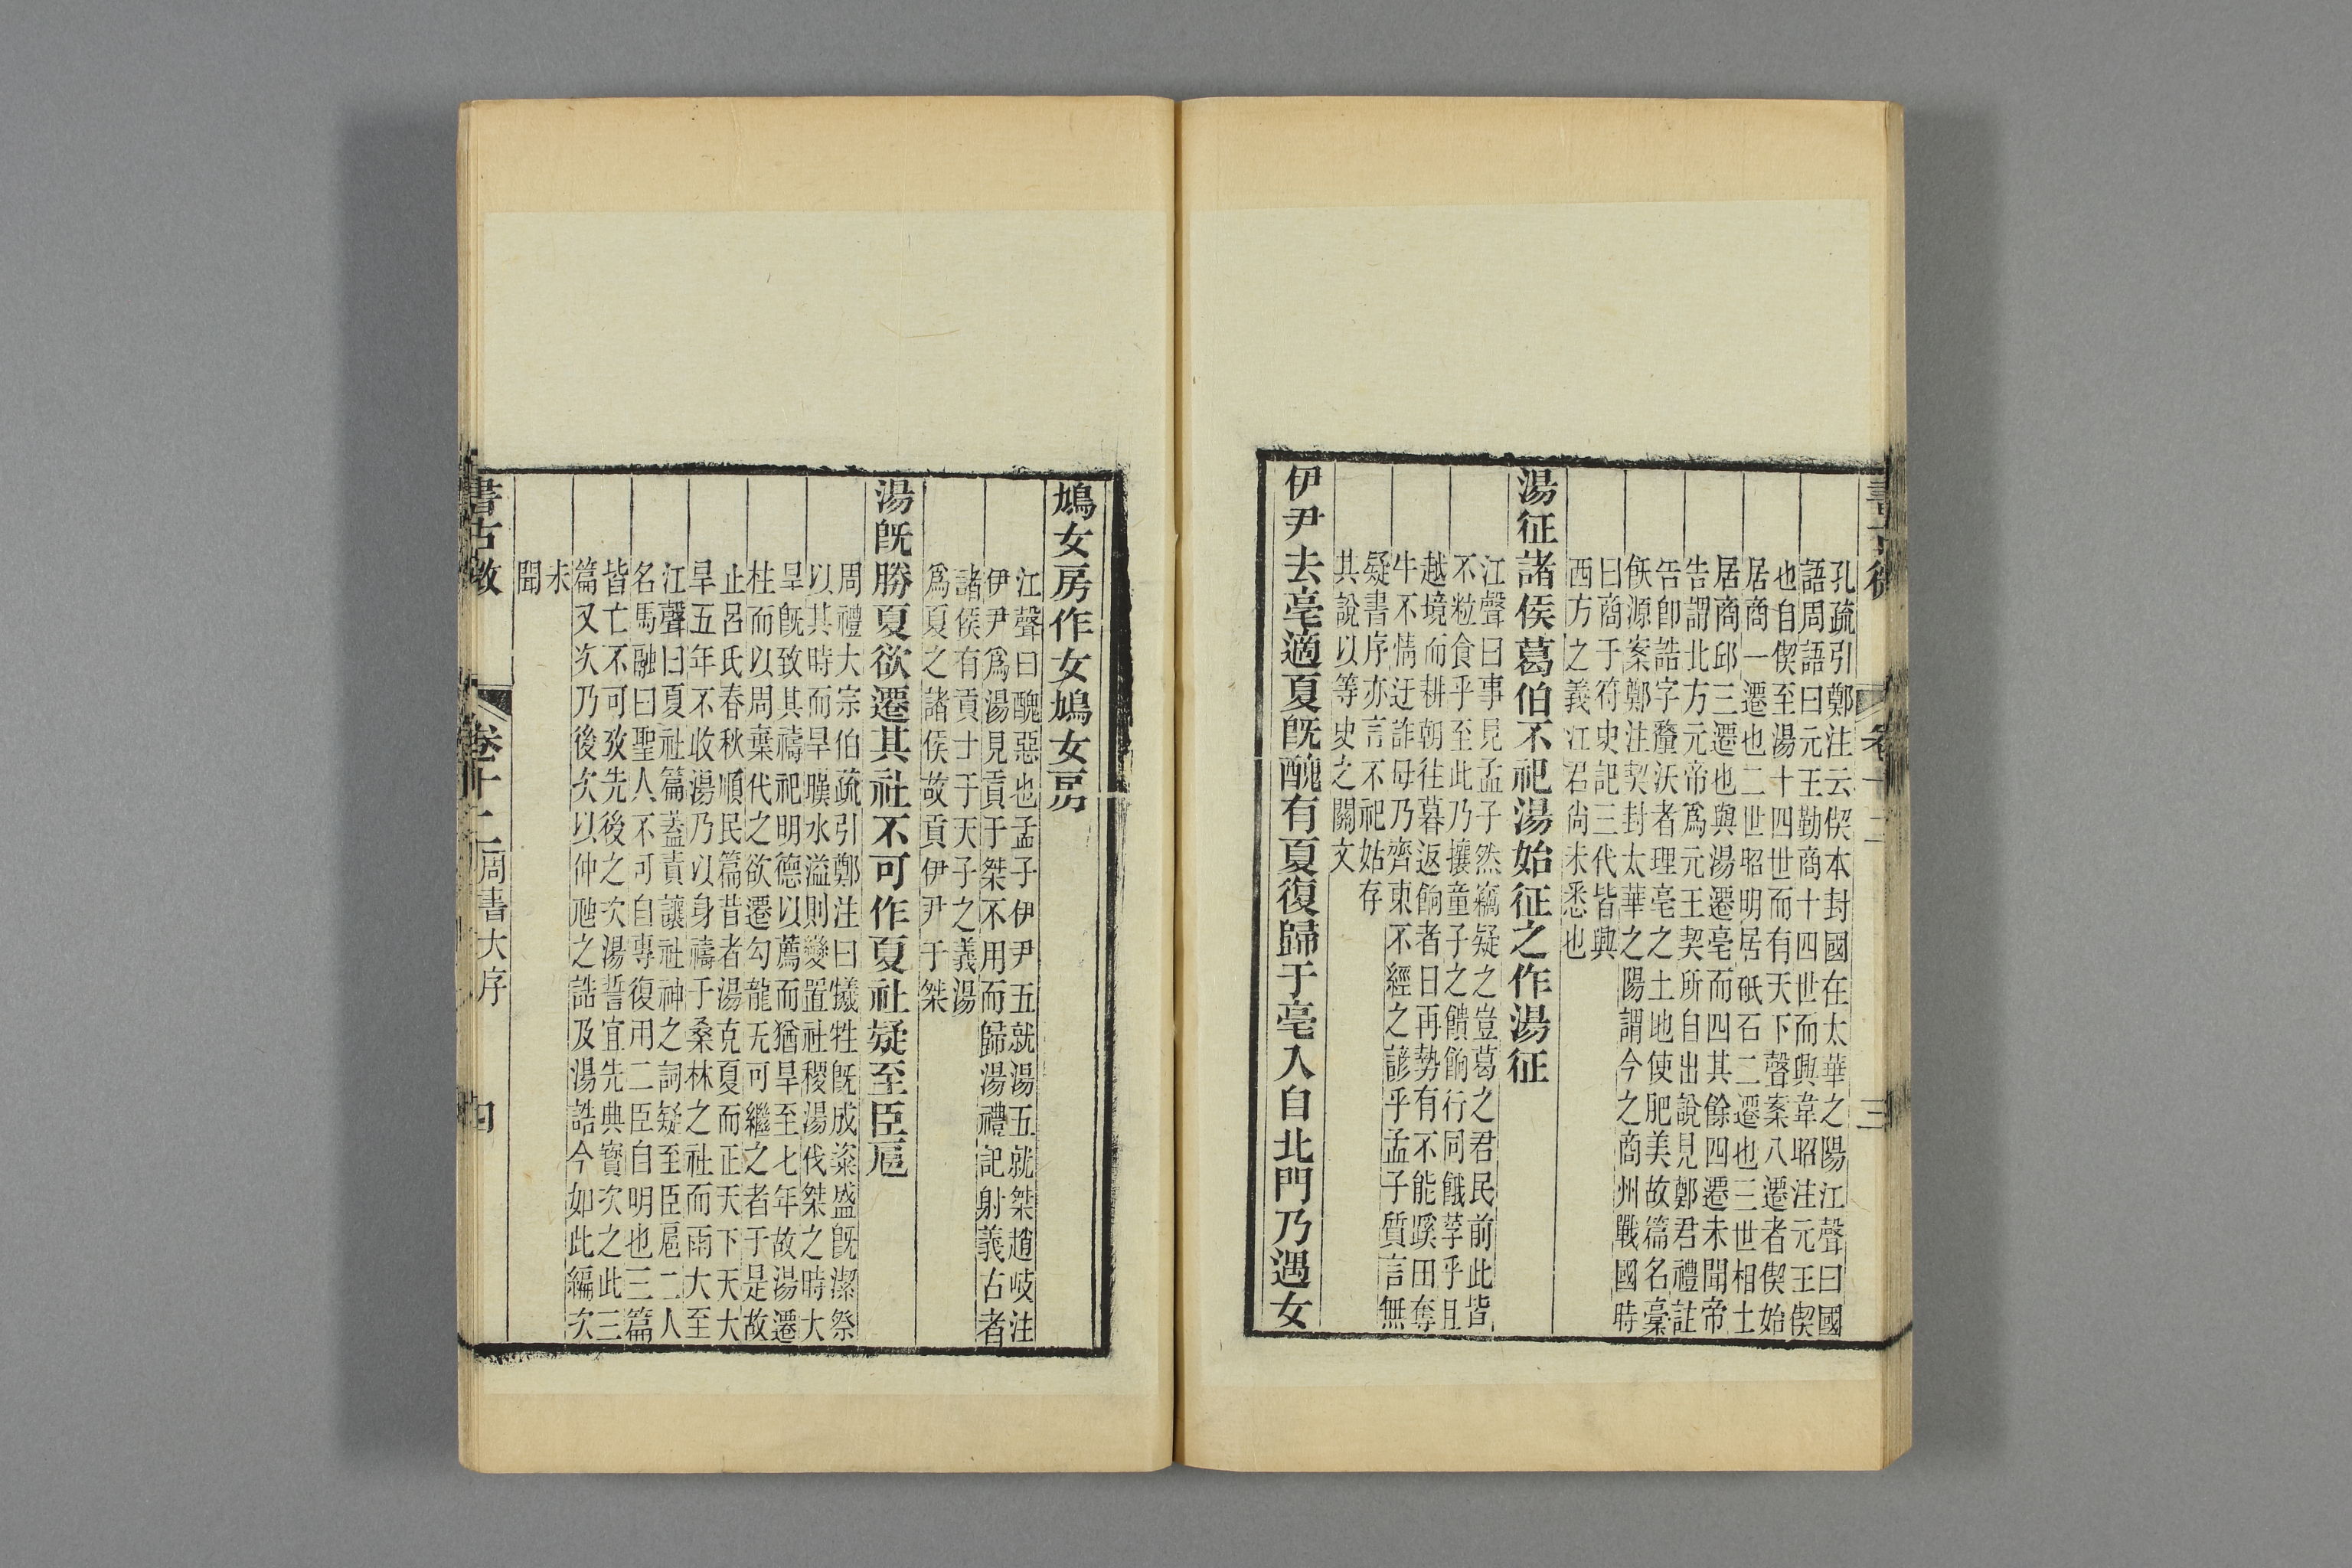 孔疏引鄭注云偰本封國在太華之陽江聲曰國
語周語曰元王勤商十四世而興韋昭注元王偰
也自偰至湯十四世而有天下聲案八遷者偰始
居商一遷也二世昭明居砥石二遷也三世相土
居商邱三遷也與湯遷亳而四其餘四遷未聞帝
告謂北方元帝爲元王契所自出說見鄭君禮註
告卽誥字釐沃者理亳之土地使肥美故篇名稾
飫源案鄭注契封太華之陽謂今之商州戰國時
曰商于符史記三代皆興
西方之義江君尚未悉也
湯征諸侯葛伯不祀湯始征之作湯征
江聲曰事見孟子然竊疑之豈葛之君民前此皆
不粒食乎至此乃攘童子之饋餉行同餓莩乎且
越境而耕朝往暮返餉者日再勢有不能蹊田奪
牛不情迂詐毋乃齊東不經之諺乎孟子質言無
疑書序亦言不祀姑存
其說以等史之闕文
伊尹去亳適夏旣醜有夏復歸于亳入自北門乃遇女
鳩女房作女鳩女房
江聲曰醜惡也孟子伊尹五就湯五就桀趙岐注
伊尹爲湯見貢于桀不用而歸湯禮記射義古者
諸侯有貢士于天子之義湯
爲夏之諸侯故貢伊尹于桀
湯旣勝夏欲遷其社不可作夏社疑至臣扈
周禮大宗伯疏引鄭注曰犧牲旣成粢盛旣潔祭
以其時而旱暵水溢則變置社稷湯伐桀之時大
旱旣致其禱祀明德以薦而猶旱至七年故湯遷
柱而以周棄代之欲遷勾龍无可繼之者于是故
止呂氏春秋順民篇昔者湯克夏而正天下天大
旱五年不收湯乃以身禱于桑林之社而雨大至
江聲曰夏社篇蓋責讓社神之詞疑至臣扈二人
名馬融曰聖人不可自專復用二臣自明也三篇
皆亡不可攷先後之次湯誓宜先典寶次之此三
篇又次乃後次以仲虺之誥及湯誥今如此編次
未
聞
書古微
卷十二
周書大序
四